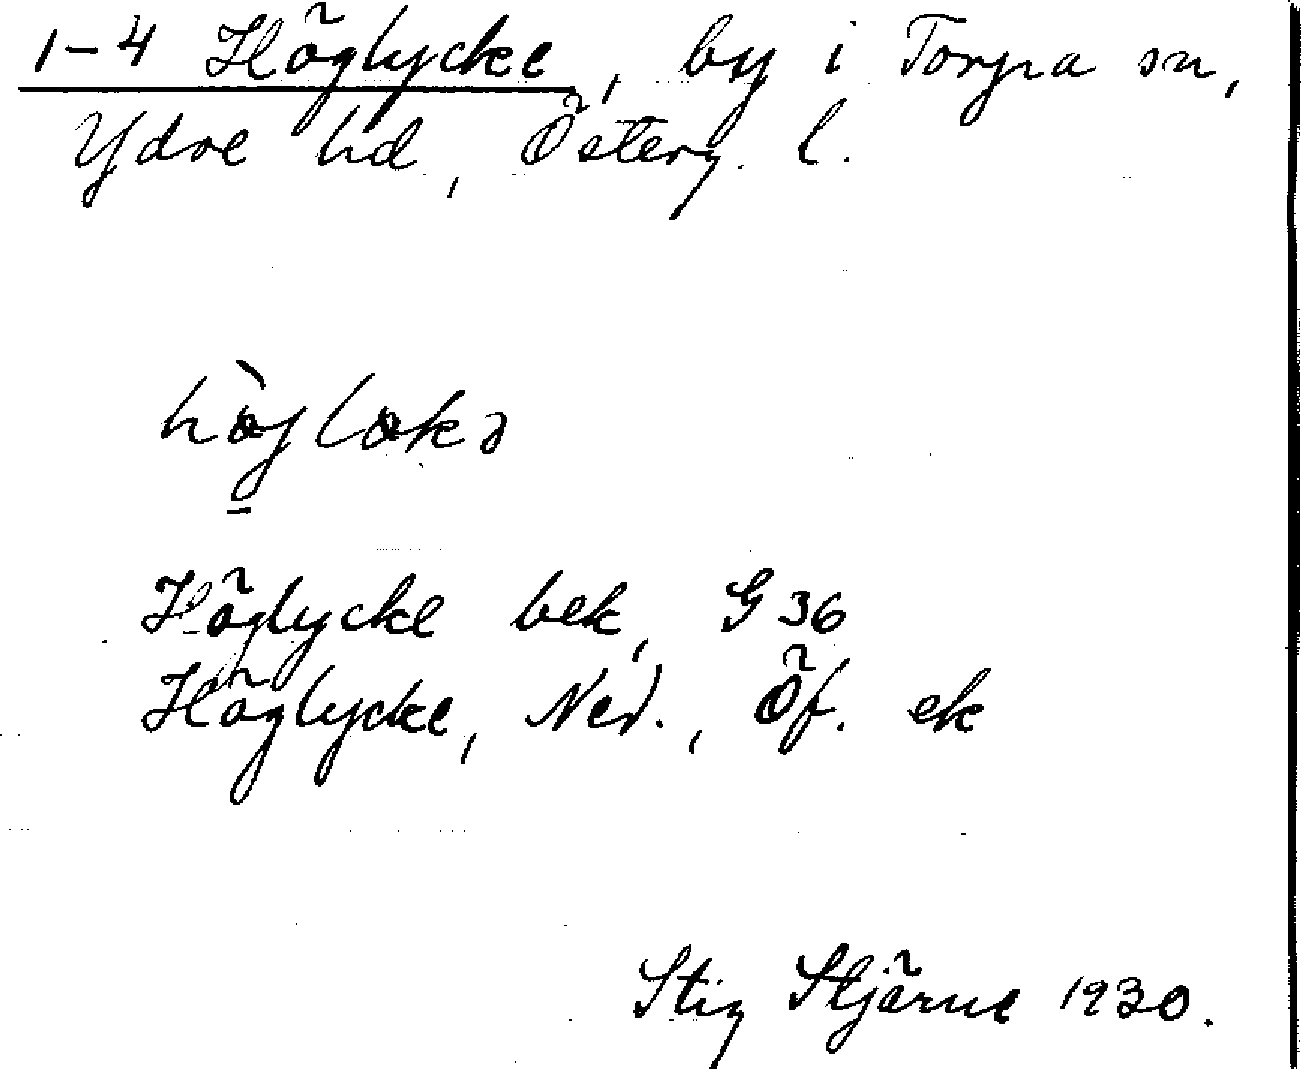 1-4 Höglycke, by i Torpa sn,
Ydre hd, Österg. l.
hø̀jløkə
Höglycke bek, G 36
Höglycke, Ned., Öf. ek
Stig Stjärne 1930.